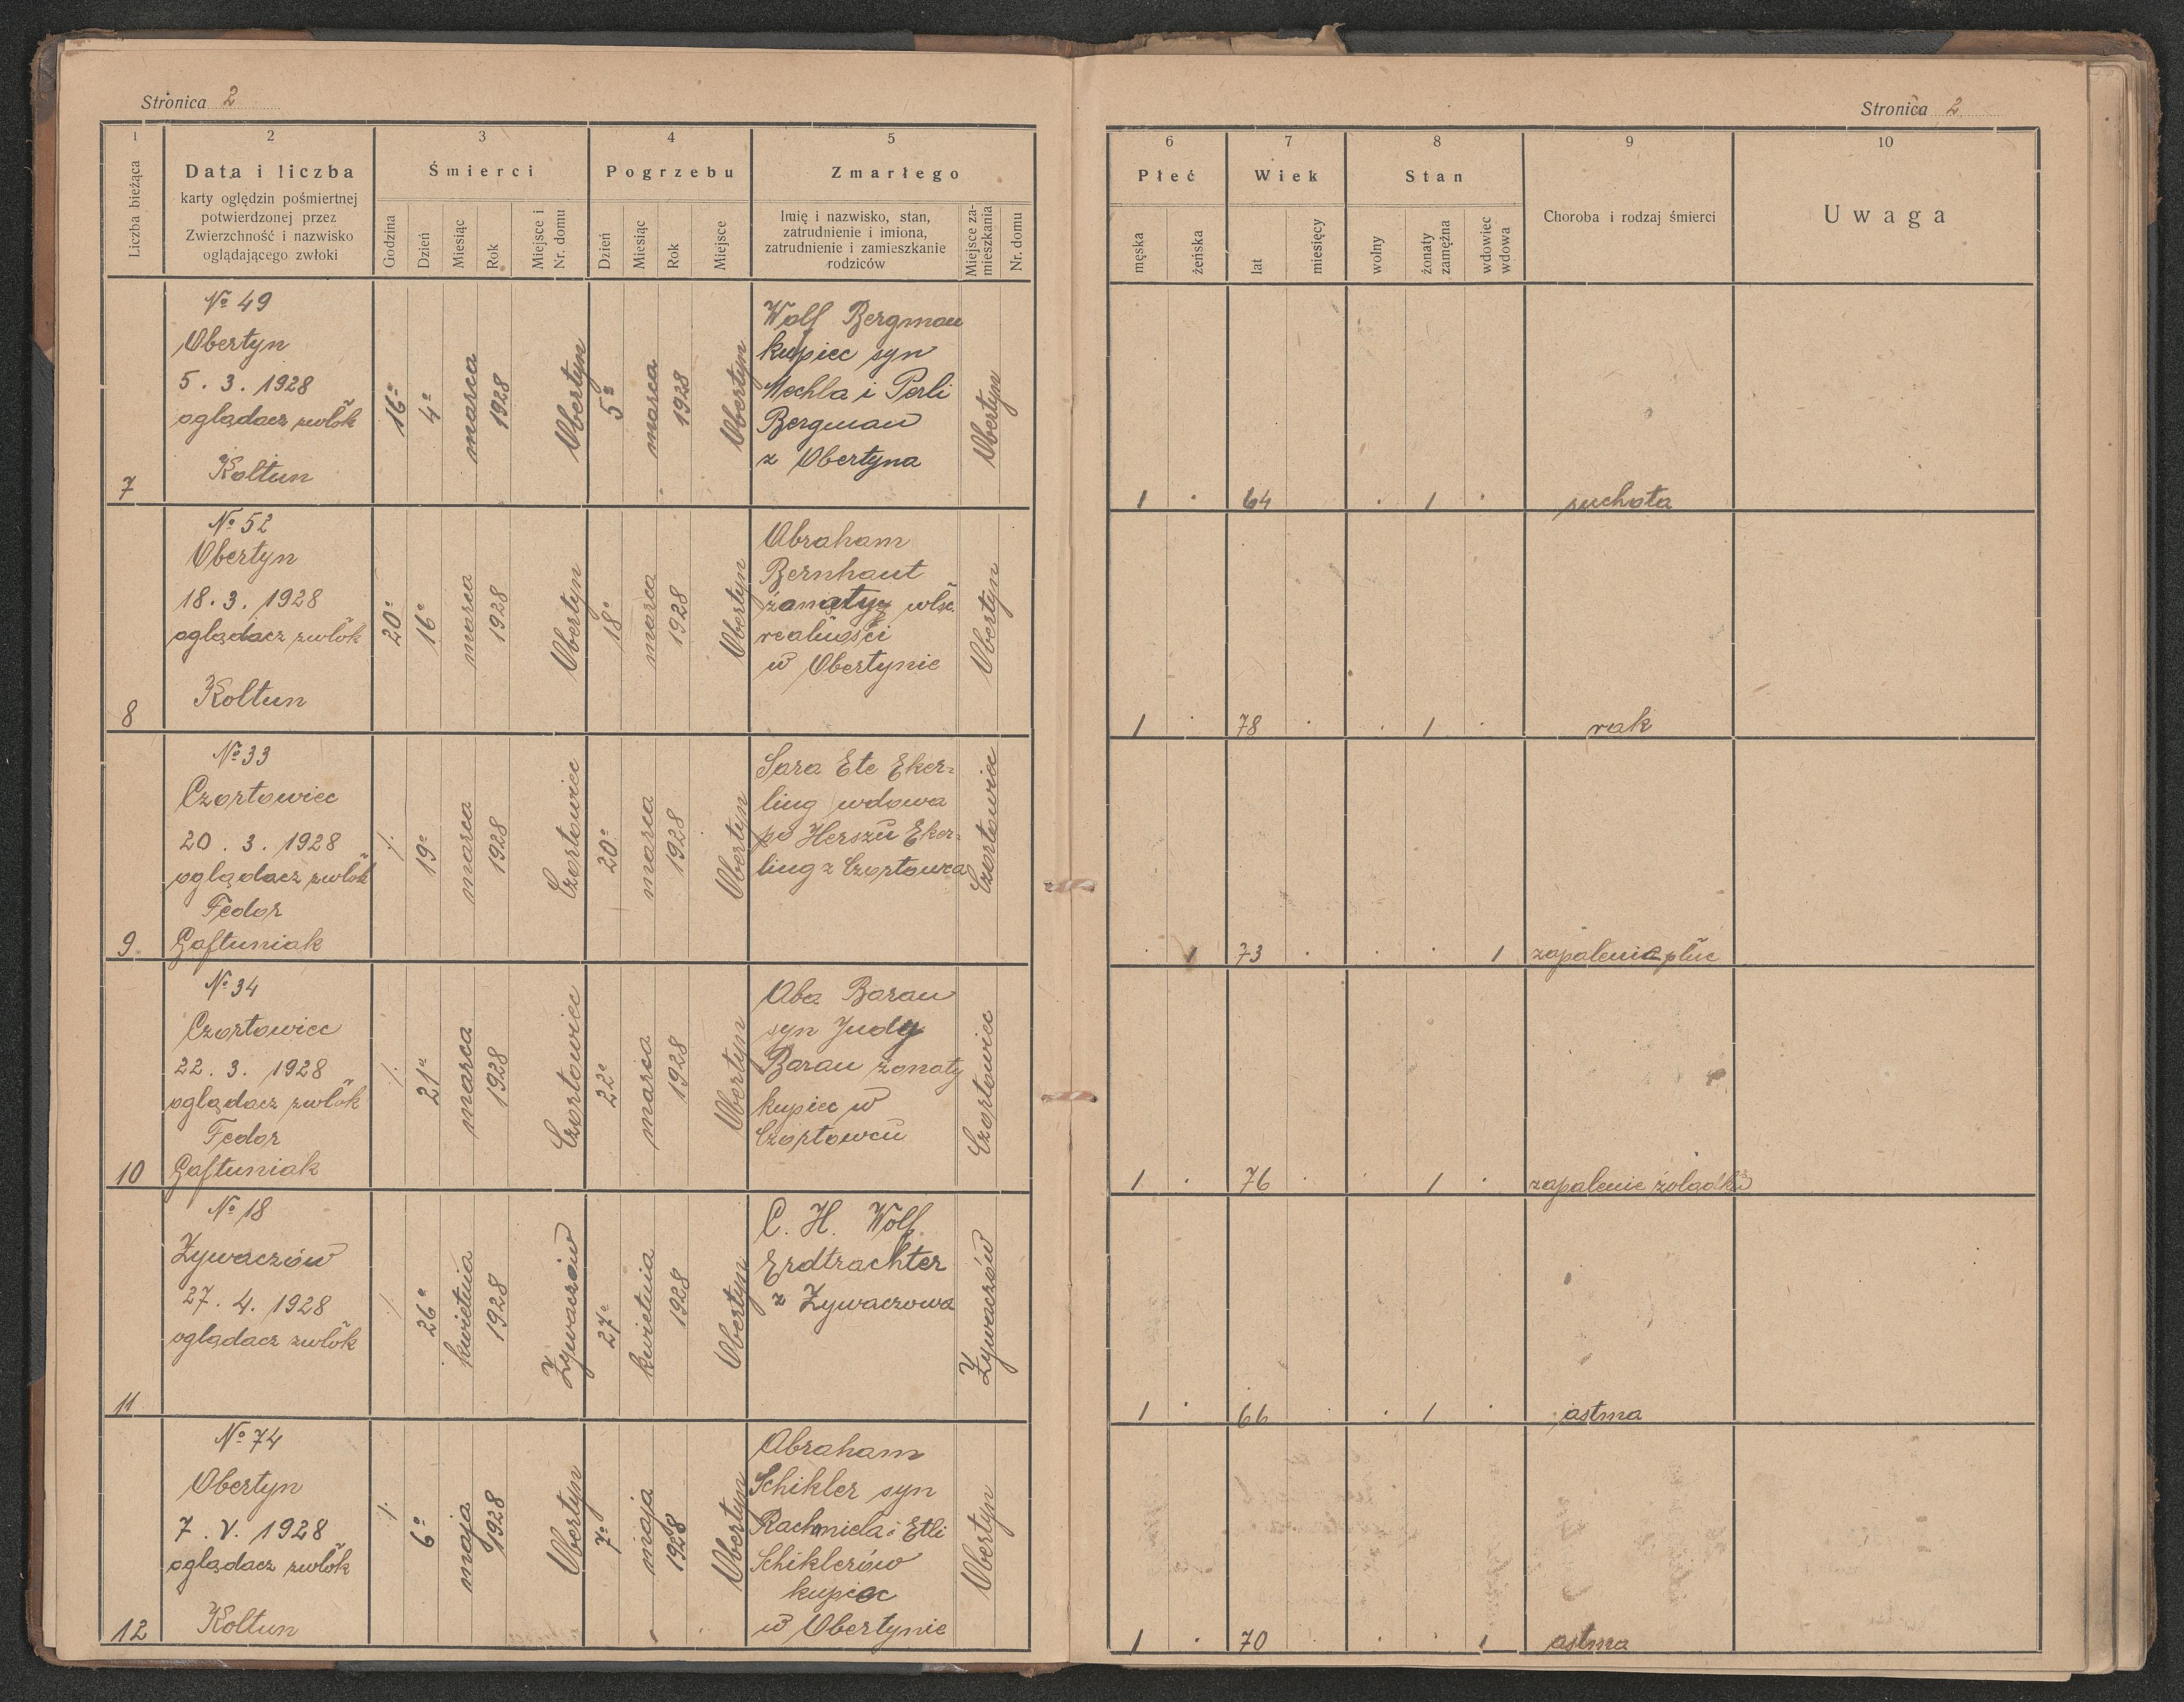 Stronica 2
1
2
3
4
5
Liczba bieżąca
Data i liczba
karty oględzin pośmiertnej
potwierdzonej przez
Zwierzchność i nazwisko
oglądającego zwłoki
Śmierci
Godzina
Dzień
Miesiąc
Rok
Miejsce i
Nr. domu
Pogrzebu
Dzień
Miesiąc
Rok
Miejsce
Zmarłego
Imię i nazwisko, stan,
zatrudnienie i imiona,
zatrudnienie i zamieszkanie
rodziców
Miejsce za-
mieszkania
Nr. domu
7
№ 49
Obertyn
5. 3. 1928
oglądacz zwłok
Koltun
16°
4°
marca
1928
Obertyn
5°
marca
1928
Obertyn
Wolf Bergman
kupiec syn
Mechla i Perli
Bergman
z Obertyna
Obertyn
8
№ 52
Obertyn
18. 3. 1928
oglądacz zwłok
Koltun
20°
16°
marca
1928
Obertyn
18°
marca
1928
Obertyn
Abraham
Bernhaut
żonaty właś.
realności
w Obertynie
Obertyn
9.
№ 33
Czortowiec
20. 3. 1928
oglądacz zwłok
Fedor
Gaftuniak
/.
19°
marca
1928
Czortowiec
20°
marca
1928
Obertyn
Sara Ete Eker=
ling wdowa
po Herszu Eker=
ling z Czortowca
Czortowiec
10
№ 34
Czortowiec
22. 3. 1928
oglądacz zwłok
Fedor
Gaftuniak
/.
21°
marca
1928
Czortowiec
22°
marca
1928
Obertyn
Aba Baran
syn Judy
Baran żonaty
kupiec w
Czortowcu
Czortowiec
11
№ 18
Żywaczów
27. 4. 1928
oglądacz zwłok
/.
26°
kwietnia
1928
Żywaczów
27°
kwietnia
1928
Obertyn
C. H. Wolf
Erdtrachter
z Żywaczowa
Żywaczów
12
№ 74
Obertyn
7. V. 1928
oglądacz zwłok
Koltun
/.
6°
maja
1928
Obertyn
7°
maja
1928
Obertyn
Abraham
Schikler syn
Rachmiela i Etli
Schiklerów
kupiec
w Obertynie
Obertyn
Stronica 2
6
7
8
9
10
Płeć
męska
żeńska
Wiek
lat
miesięcy
Stan
wolny
żonaty
zamężna
wdowiec
wdowa
Choroba i rodzaj śmierci
Uwaga
1 . 64 . 1 . suchota
1 . 78 . . 1 . rak
. 1 73 . . . 1 zapalenie płuc
1 . 76 . . 1 . zapalenie żolądka
1 . 66 . . 1 . astma
1 . 70 . . . 1 astma